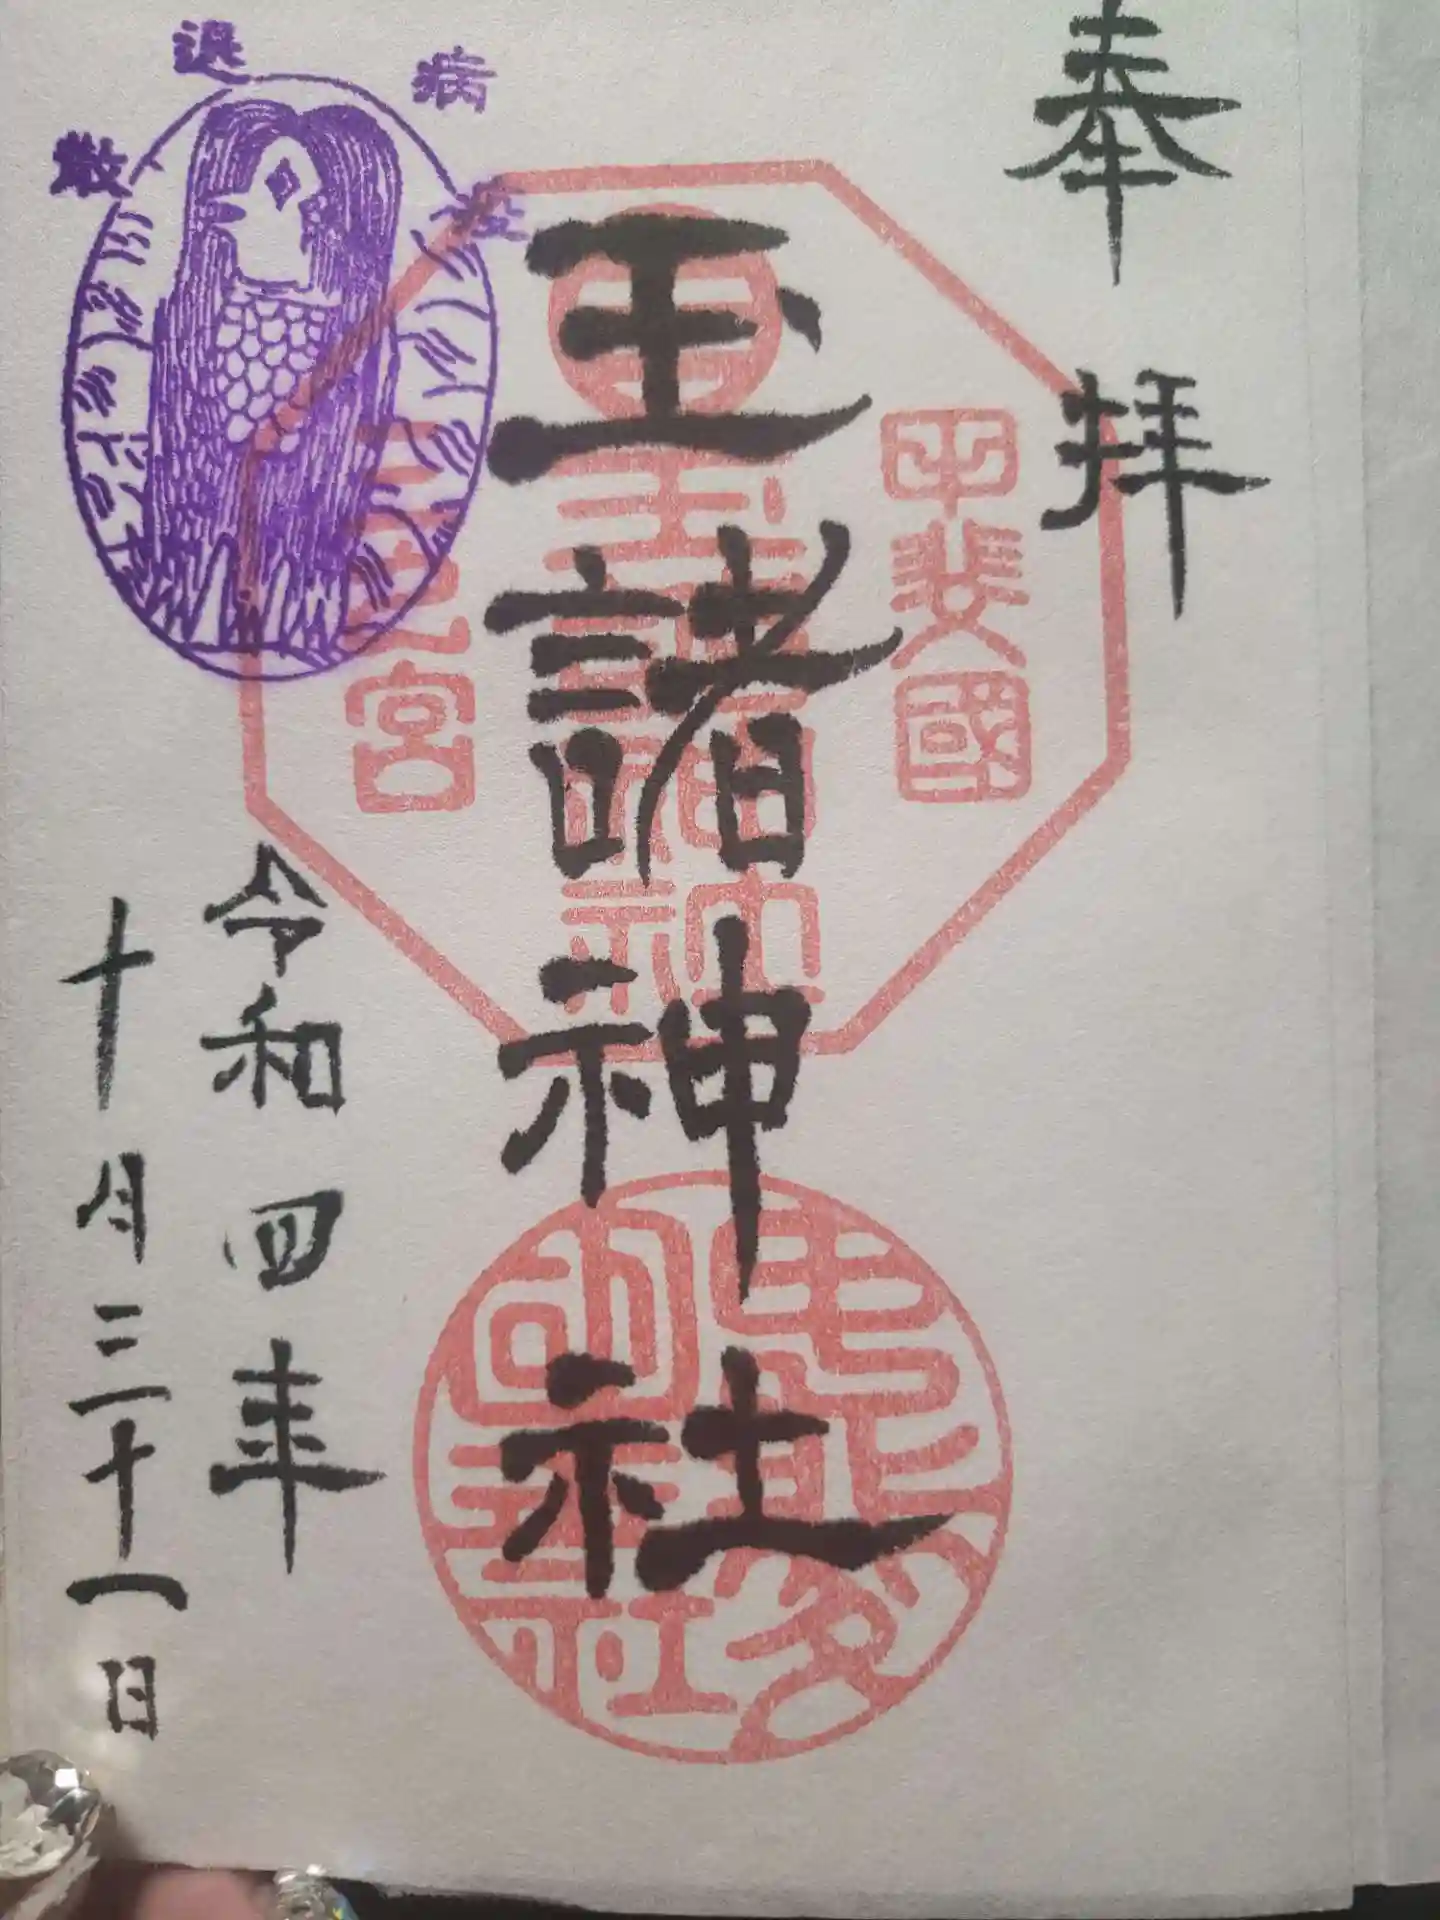 奉拝
甲斐國
玉諸神社
玉諸神社
三宮
疫病退散
令和四年
十月三十一日